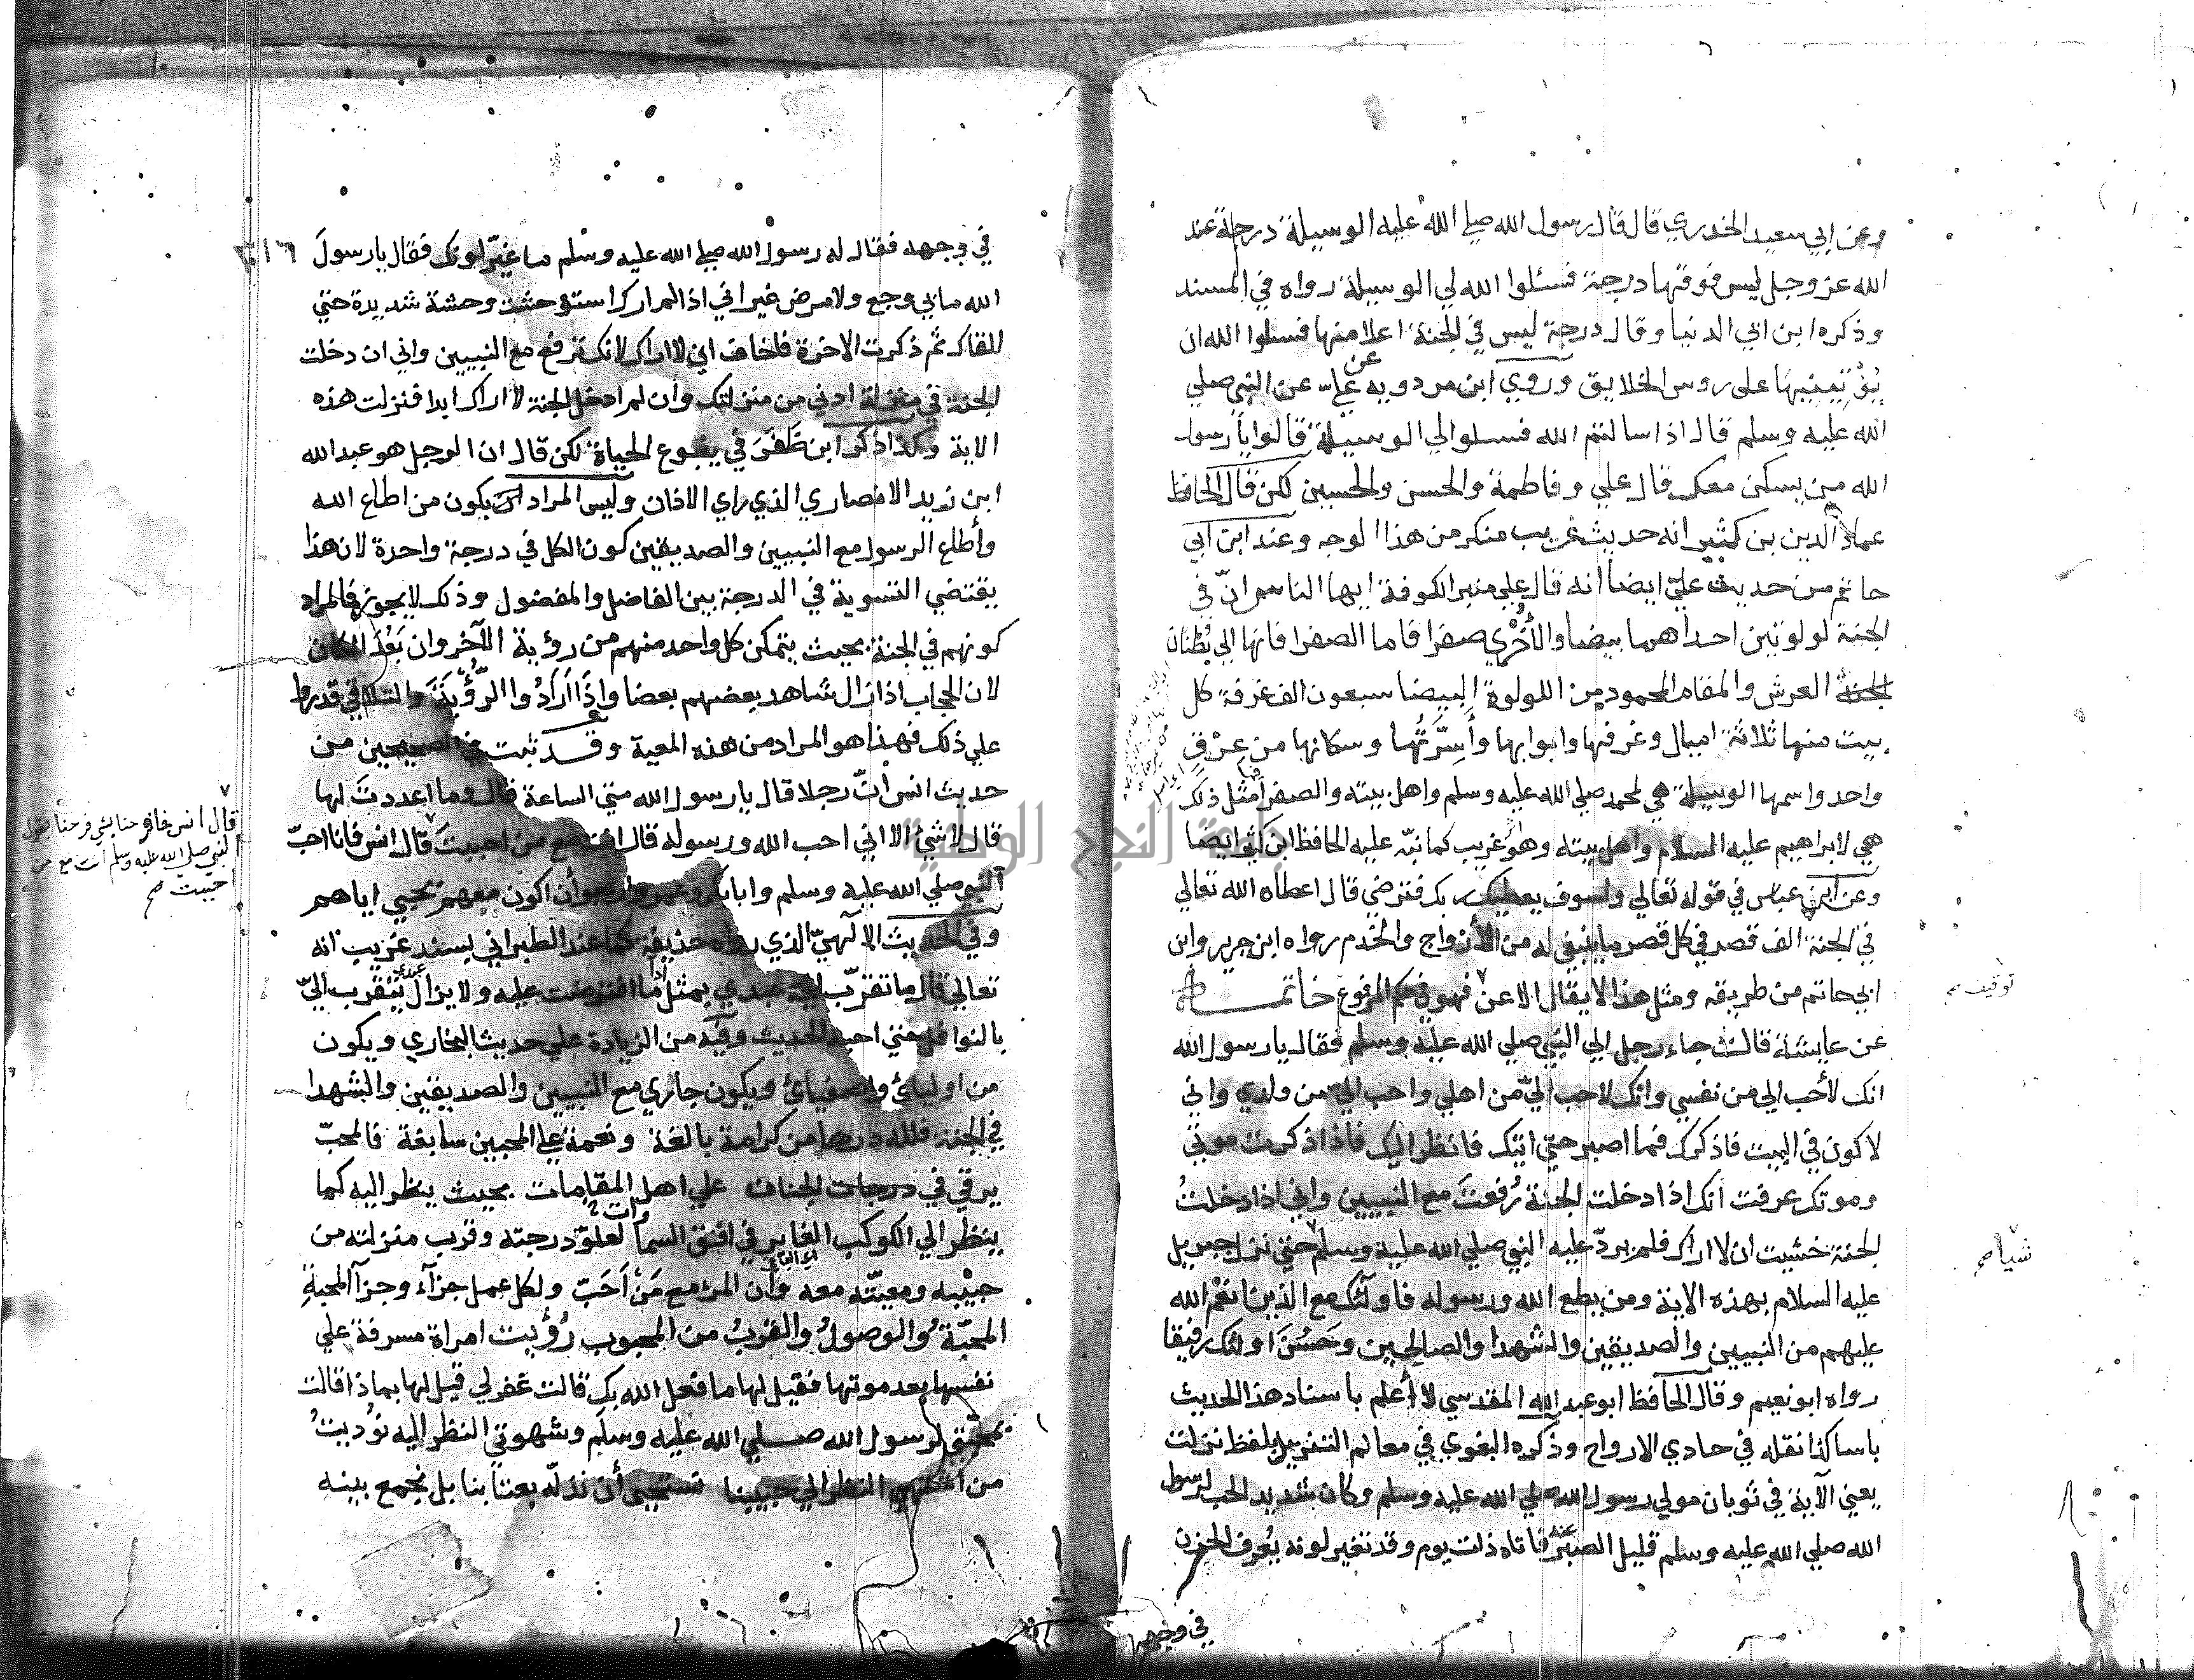 وعن ابي سعيد الخدري قال قال رسول الله صلي الله عليه الوسيلة درجة عند
الله عز وجل ليس فوقها درجة فسئلوا الله لي الوسيلة رواه في المسند
وذكره ابن ابي الدنيا وقال درجة ليس في الجنة اعلا منها فسلوا الله ان
يؤتينيها على روس الخلايق وروي ابن مردويه عن علي عن النبي صلي
الله عليه وسلم قال اذا سالتم الله فسلوا لي الوسيلة قالوا يا رسول
الله من يسكن معك قال علي وفاطمة والحسن والحسين لكن قال الحافظ
عماد الدين بن كثير انه حديث غريب منكر من هذا الوجه وعند ابن ابي
حاتم من حديث علي ايضا انه قال علي منبر الكوفة ايها الناس ان في
الجنة لولوتين احداهما بيضا والأخري صفرا فاما الصفرا فانها الي بطنان
العرش والمقام المحمود من اللولوة البيضا سبعون الف غرفة كل
بيت منها ثلاثة اميال وغرفها وابوابها وأسرتها وسكانها من عرق
واحد واسمها الوسيلة هي لمحمد صلي الله عليه وسلم واهل بيته والصفرا فيها مثل ذلك
هي لابراهيم عليه السلام واهل بيته وهو غريب كما نبه عليه الحافظ ابن كثير ايضا
وعن ابن عباس في قوله تعالي ولسوف يعطيك ربك فترضي قال اعطاه الله تعالي
في الجنة الف قصر في كل قصر ما ينبغي له من الأزواج والخدم رواه ابن جرير وابن
ابي حاتم من طريقه ومثل هذا لا يقال الا عن فهو في حكم المرفوع خاتمة
توقيف صح
عن عايشة قالت جاء رجل الي النبي صلي الله عليه وسلم فقال يا رسول الله
انك لأحب الي من نفسي وانك لاحب الي من اهلي واحب الي من ولدي واني
لاكون في البيت فاذكرك فما اصبر حتي اتيك فانظر اليك فاذا ذكرت موتي
وموتك عرفت انك اذا دخلت الجنة رفعت مع النبيين واني اذا دخلت
الجنة خشيت ان لا اراك فلم يرد عليه النبي صلي الله عليه وسلم حتي نزل جبريل
شيا صح
عليه السلام بهذه الاية ومن يطع الله ورسوله فاولئك مع الذين انعم الله
عليهم من النبيين والصديقين والشهدا والصالحين وحسن اولئك رفيقا
رواه ابو نعيم وقال الحافظ ابو عبد الله المقدسي لا أعلم باسناد هذا الحديث
باسا كذا نقله في حادي الارواح وذكره البغوي في معالم التنزيل بلفظ نزلت
يعني الآية في ثوبان مولي رسول الله صلي الله عليه وسلم وكان شديد الحب لرسول
الله صلي الله عليه وسلم قليل الصبر عنه فاتاه ذات يوم وقد تغير لونه يعرف الحزن
في وجهه
٣١٦
في وجهه فقال له رسول الله صلي الله عليه وسلم ما غير لونك فقال يا رسول
الله ما بي وجع ولا مرض غير اني اذا لم ارك استوحشت وحشة شديدة حتي
القاك ثم ذكرت الاخرة فاخاف اني لا اراك لانك ترفع مع النبيين واني ان دخلت
الجنة في منزلة ادني من منزلتك وان لم ادخل الجنة لا اراك ابدا فنزلت هذه
الاية وكذا ذكر ابن ظفر في ينبوع الحياة لكن قال ان الرجل هو عبد الله
ابن زيد الانصاري الذي راي الاذان وليس المراد ان يكون من اطاع الله
وأطاع الرسول مع النبيين والصديقين كون الكل في درجة واحدة لان هذا
يقتضي التسوية في الدرجة بين الفاضل والمفضول وذلك لا يجوز فالمراد
كونهم في الجنة بحيث يتمكن كل واحد منهم من رؤية الآخر وان بعد المكان
لان الحجاب اذا زال شاهد بعضهم بعضا واذا ارادوا الرؤية والتلاقي قدروا
علي ذلك فهذا هو المراد من هذه المعية وقد ثبت في الصحيحين من
حديث انس ان رجلا قال يا رسول الله متي الساعة قال وما اعددت لها
قال لا شئ الا اني احب الله ورسوله قال انت مع من احببت قال انس فانا احب
قال انس فما فرحنا بشي فرحنا بقول
النبي صلي الله عليه وسلم انت مع من
احببت صح
النبي صلي الله عليه وسلم وابا بكر وعمر وارجو أن اكون معهم بحبي اياهم
وفي الحديث الالهي الذي رواه حذيفة كما عند الطبراني بسند غريب انه
تعالي قال ما تقرب الي عبدي بمثل أدآ ما افترضت عليه ولا يزال عبدي يتقرب الي
بالنوافل حتي احبه الحديث وفيه من الزيادة علي حديث البخاري ويكون
من اوليائي واصفيائي ويكون جاري مع النبيين والصديقين والشهدا
في الجنة فلله درها من كرامة بالغة ونعمة علي المحبين سابغة فالمحب
يرقي في درجات الجنات علي اهل المقامات بحيث ينظر اليه كما
ينظر الي الكوكب الغابر في افق السموات لعلو درجته وقرب منزلته من
حبيبه ومعيته معه وان المرء مع من احب ولكل عمل جزآء وجزآ المحبة
المحبة والوصول والقرب من المحبوب رؤيت امراة مسرفة علي
نفسها بعد موتها فقيل لها ما فعل الله بك قالت غفر لي قيل لها بماذا قالت
بمحبتي لرسول الله صلي الله عليه وسلم وشهوتي النظر اليه نوديت
من اشتهي النظر الي حبيبنا نستحيي أن نذله بعتابنا بل نجمع بينه
جامعة النجاح الوطنية